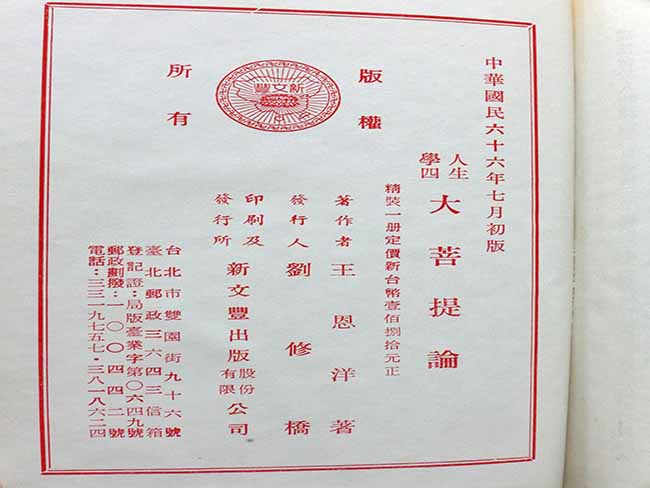 中華國民六十六年七月初版
人生學四
大菩提論
精裝一册定價新台幣壹佰捌拾元正
版權所有
新文豐
著作者 王恩洋著
發行人 劉修橋
印刷及發行所 新文豐出版股份有限公司
台北市雙園街九十六號
臺北郵政三六四三信箱
登記證：局版臺業字第〇六四九號
郵政劃撥：一〇〇四四二號
電話：三三一九七五七·三八一八六二四